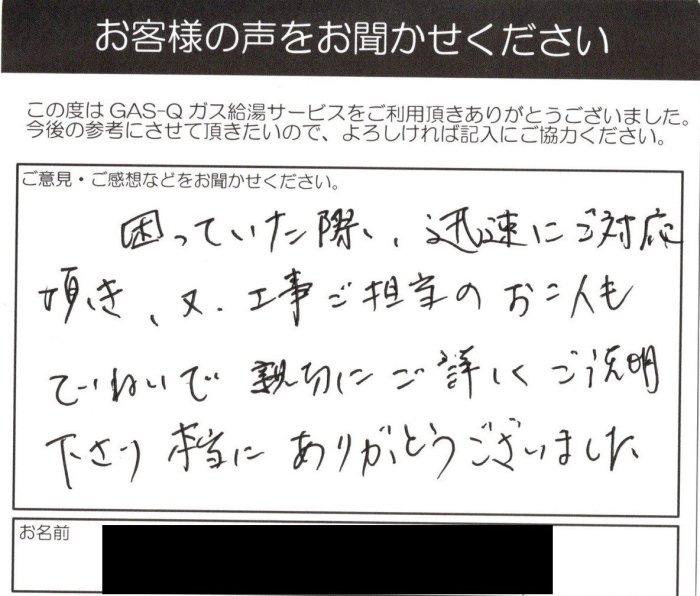 お客様の声をお聞かせください
この度は GAS-Q ガス給湯サービスをご利用頂きありがとうございました。
今後の参考にさせて頂きたいので、よろしければ記入にご協力ください。
ご意見・ご感想などをお聞かせください。
困っていた際、迅速にご対応
頂き、又、工事ご担当のお二人も
ていねいで親切にご詳しくご説明
下さり本当にありがとうございました
お名前